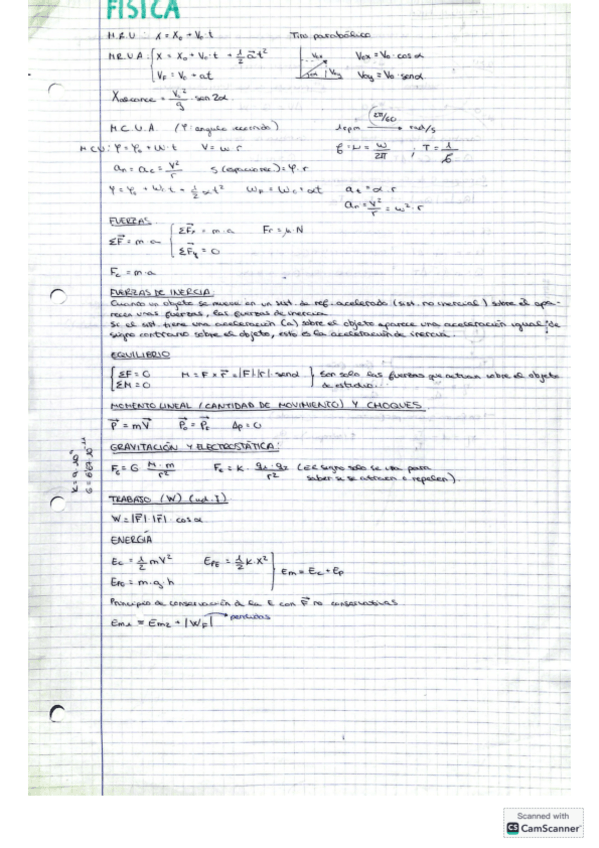 FÍSICA
M.R.U: X = X₀ + V₀·t    Tiro parabólico
M.R.U.A: { X = X₀ + V₀·t + ½ at²    V₀x    V₀x = V₀·cosα
V_F = V₀ + at    V₀y    V₀y = V₀·senα
X alcance = V₀²/g · sen 2α    2π/60
M.C.U.A. (φ: angulo recorrido)    1rpm → rad/s
MCU: φ = φ₀ + W·t    V = W·r    W/2π ; T = 1/f
an = ac = V²/r    S (espacio rec.) = φ·r
φ = φ₀ + W·t + ½ αt²    W_F = W₀ + αt    at = α·r
an = V²/r = W²·r
FUERZAS
ΣF = m·a { ΣFx = m·a    Fr = μ·N
ΣFy = 0
Fc = m·a
FUERZAS DE INERCIA:
Cuando un objeto se mueve en un sist. de ref. acelerado (sist. no inercial) sobre él apa-
recen unas fuerzas, las fuerzas de inercia.
Si el sist. tiene una aceleración (a) sobre el objeto aparece una aceleración igual, de
signo contrario sobre el objeto, esto es la aceleración de inercia.
EQUILIBRIO
{ ΣF = 0    M = F × r = |F|·|r|·senα } Son solo las fuerzas que actuan sobre el objeto
ΣM = 0    de estudio...
MOMENTO LINEAL (CANTIDAD DE MOVIMIENTO) Y CHOQUES
P = mV    P₀ = P_F    Δp = 0
GRAVITACIÓN Y ELECTROSTÁTICA:
K = 9·10⁹
G = 6'67·10⁻¹¹
F_G = G · M·m/r²    Fe = K · q₁·q₂/r² (El signo solo se usa para
saber si se atraen o repelen).
TRABAJO (W) (ud. J)
W = |F|·|r|·cosα
ENERGÍA
Ec = ½ mV²    E_PE = ½ K·X² } Em = Ec + Ep
E_PG = m·g·h
Principio de conservación de la E con F no conservativas
Em₁ = Em₂ + |W_F| → perdidas
Scanned with
CS CamScanner